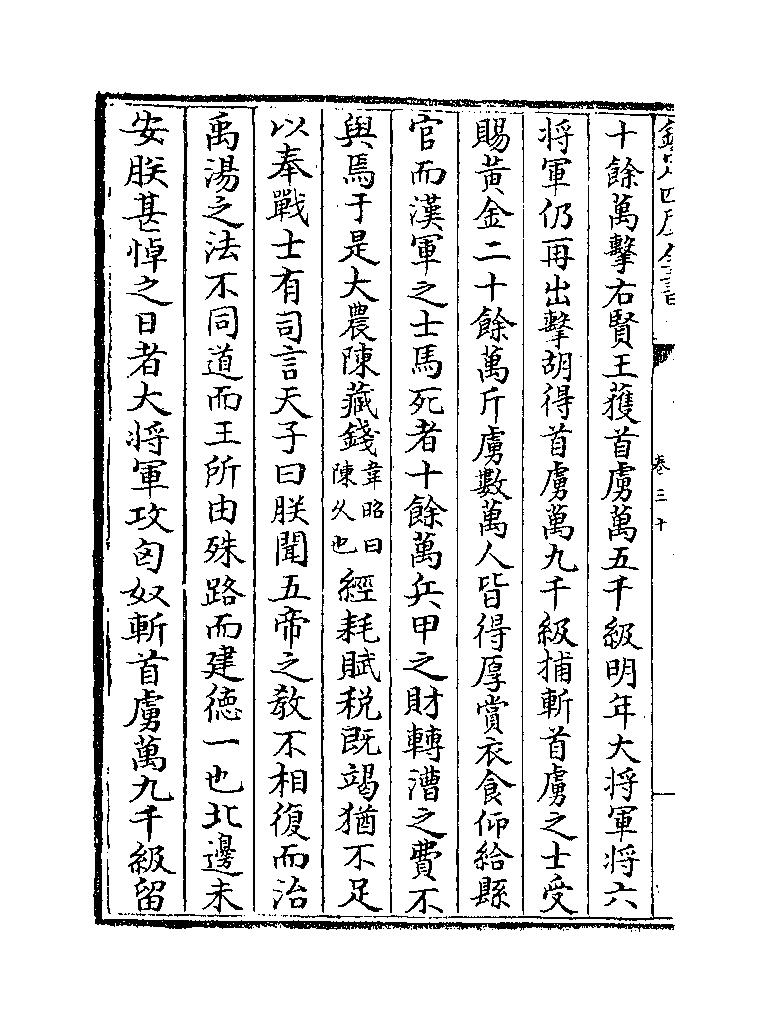 欽定四庫全書 卷三十
十餘萬擊右賢王獲首虜萬五千級明年大將軍將六
將軍仍再出擊胡得首虜萬九千級捕斬首虜之士受
賜黃金二十餘萬斤虜數萬人皆得厚賞衣食仰給縣
官而漢軍之士馬死者十餘萬兵甲之財轉漕之費不
與焉于是大農陳藏錢韋昭曰陳久也經耗賦稅既竭猶不足
以奉戰士有司言天子曰朕聞五帝之教不相復而治
禹湯之法不同道而王所由殊路而建德一也北邊未
安朕甚悼之日者大將軍攻匈奴斬首虜萬九千級留